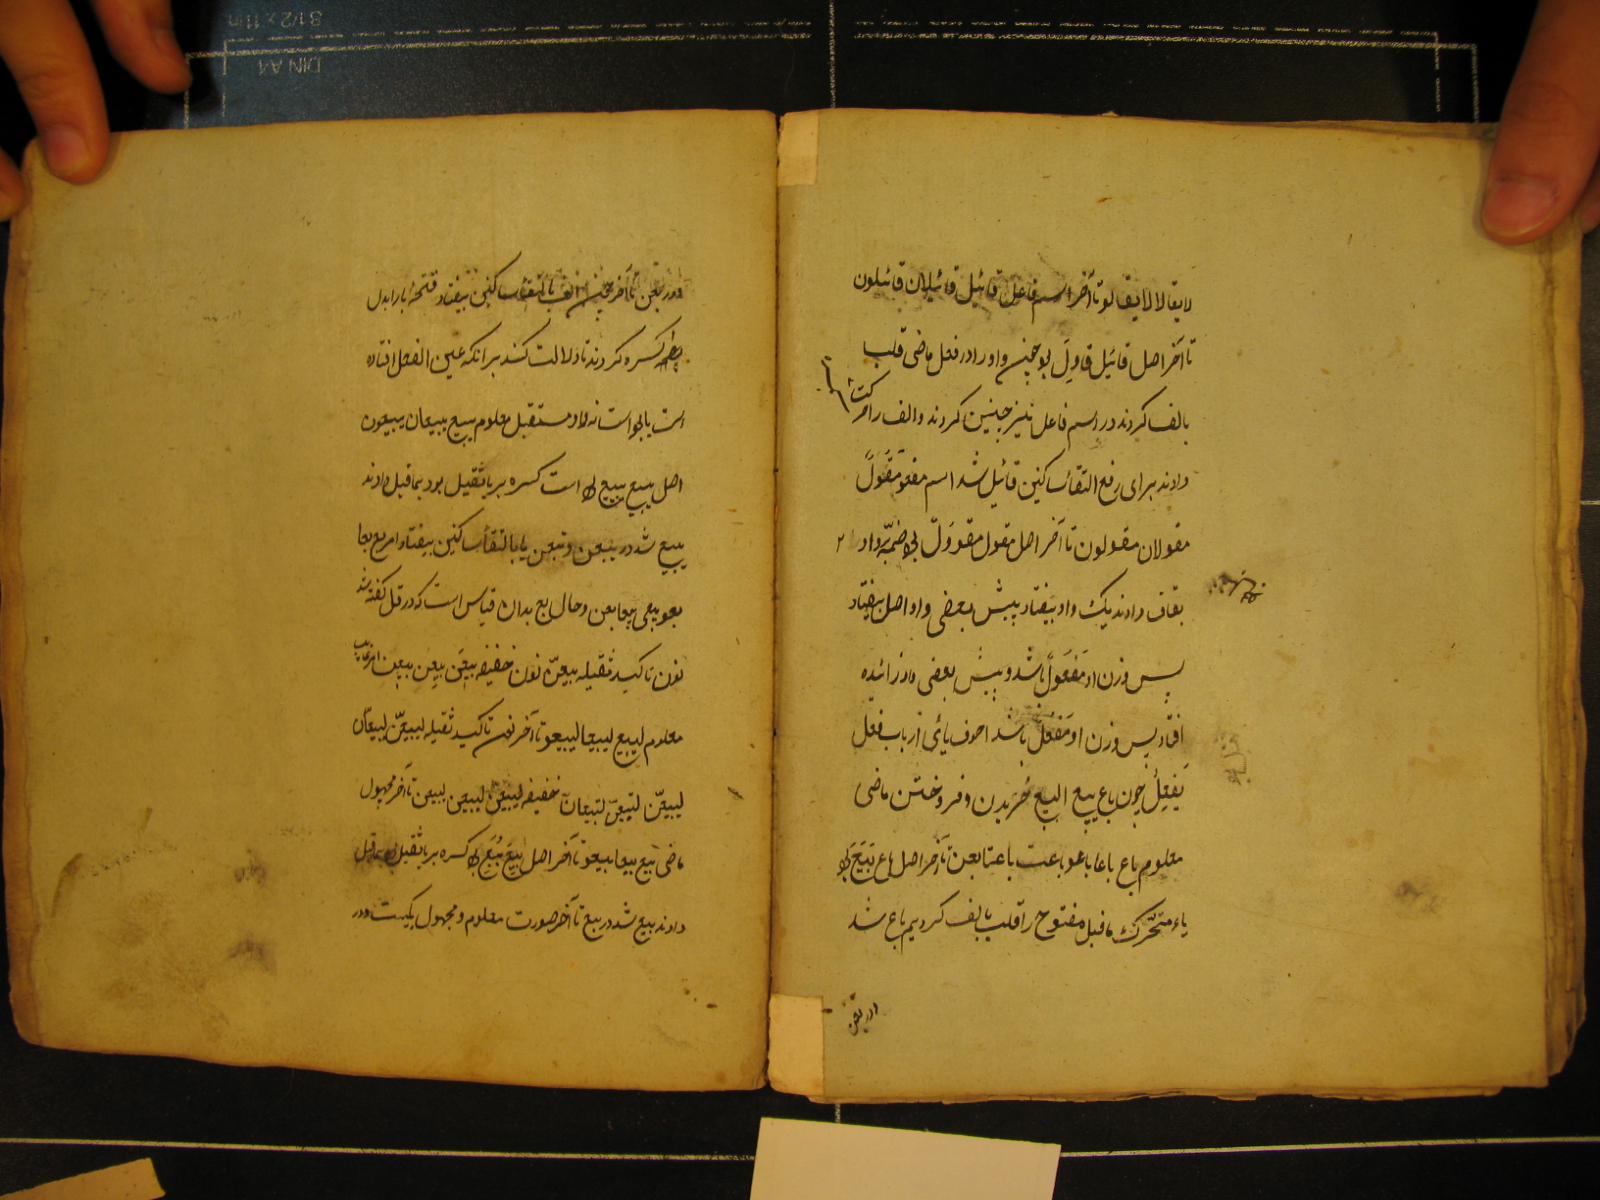 لایقالا لایقالوا تا آخر اسم فاعل قائل قائلان قائلون
تا آخر اصل قائل قاوِل بود چنین واو را در فعل ماضی قلب
بالف کردند در اسم فاعل نیز چنین کردند والف را حرکت
دادند برای رفع التقاء ساکنین قائل شد اسم مفعول مقولٌ
مقولان مقولون تا آخر اصل مقول مقوول بود ضمه بر واو
بقاف دادند یک واو بیفتاد پیش بعضی واو اصل بیفتاد
پس وزن او مَفعول باشد و پیش بعضی واو زائده
افتاد پس وزن او مَفُعلٌ باشد اجوف یائی از باب فعل
یَفعِلُ چون باع یبیع البیع خریدن و فروختن ماضی
معلوم باع باعا باعوا باعت باعتا بعن تا آخر اصل باع بَیَعَ بود
یاء متحرک ماقبل مفتوح را قلب بالف کردیم باع شد
در بعن
در بعن تا آخر چنین الف بالتقاء ساکنین بیفتاد فتحه با را بدل
بکسره کردند تا دلالت کند برانکه عین الفعل افتاده
است یا بود است نه واو مستقبل معلوم یبیع یبیعان یبیعون
اصل یبیع یبیع بود است کسره بر یا ثقیل بود بماقبل دادند
یبیع شد در یبعن و تبعن یا بالتقاء ساکنین بیفتاد امر بع بیعا
بیعوا بیعی بیعا بعن وحال بع بدان قیاس است که در قل گفته شد
نون تاکید ثقیله بیعنّ نون خفیفه بیعَن بیعُن بیعِن امر غایب
معلوم لیبع لیبیعا لیبیعوا تا آخر نون تاکید ثقیله لیبیعنّ لیبیعانّ
لیبیعنّ لتبیعنّ لتبیعانّ خفیفه لیبیعن لیبیعن لتبیعن تا آخر مجهول
ماضی بیع بیعا بیعوا تا آخر اصل بیعَ بُیِعَ بود کسره بر یا ثقیل بود بماقبل
دادند بیع شد در بعن تا آخر صورت معلوم و مجهول یکیست و در